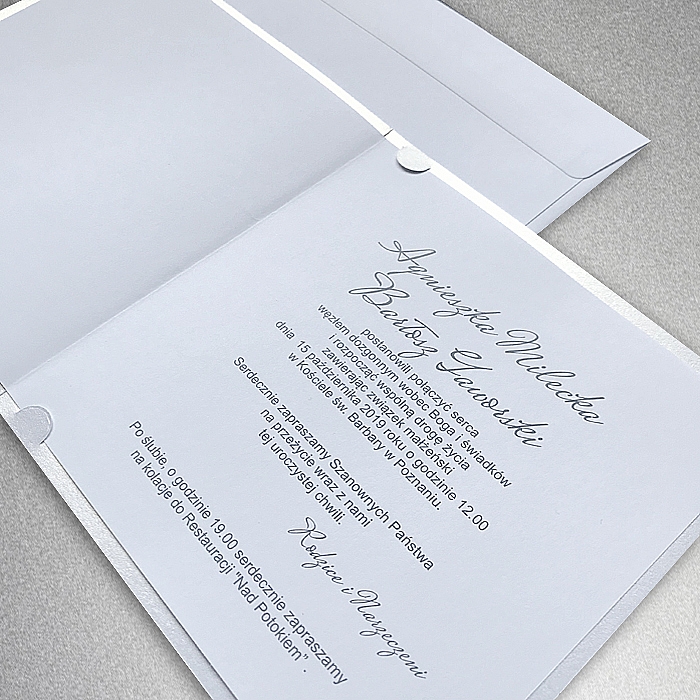 Agnieszka Milecka
Bartosz Jaworski
postanowili połączyć serca
węzłem dozgonnym wobec Boga i świadków
i rozpocząć wspólną drogę życia
zawierając związek małżeński
dnia 15 października 2019 roku o godzinie 12.00
w Kościele św. Barbary w Poznaniu.
Serdecznie zapraszamy Szanownych Państwa
na przeżycie wraz z nami
tej uroczystej chwili.
Rodzice i Narzeczeni
Po ślubie, o godzinie 19.00 serdecznie zapraszamy
na kolację do Restauracji "Nad Potokiem".